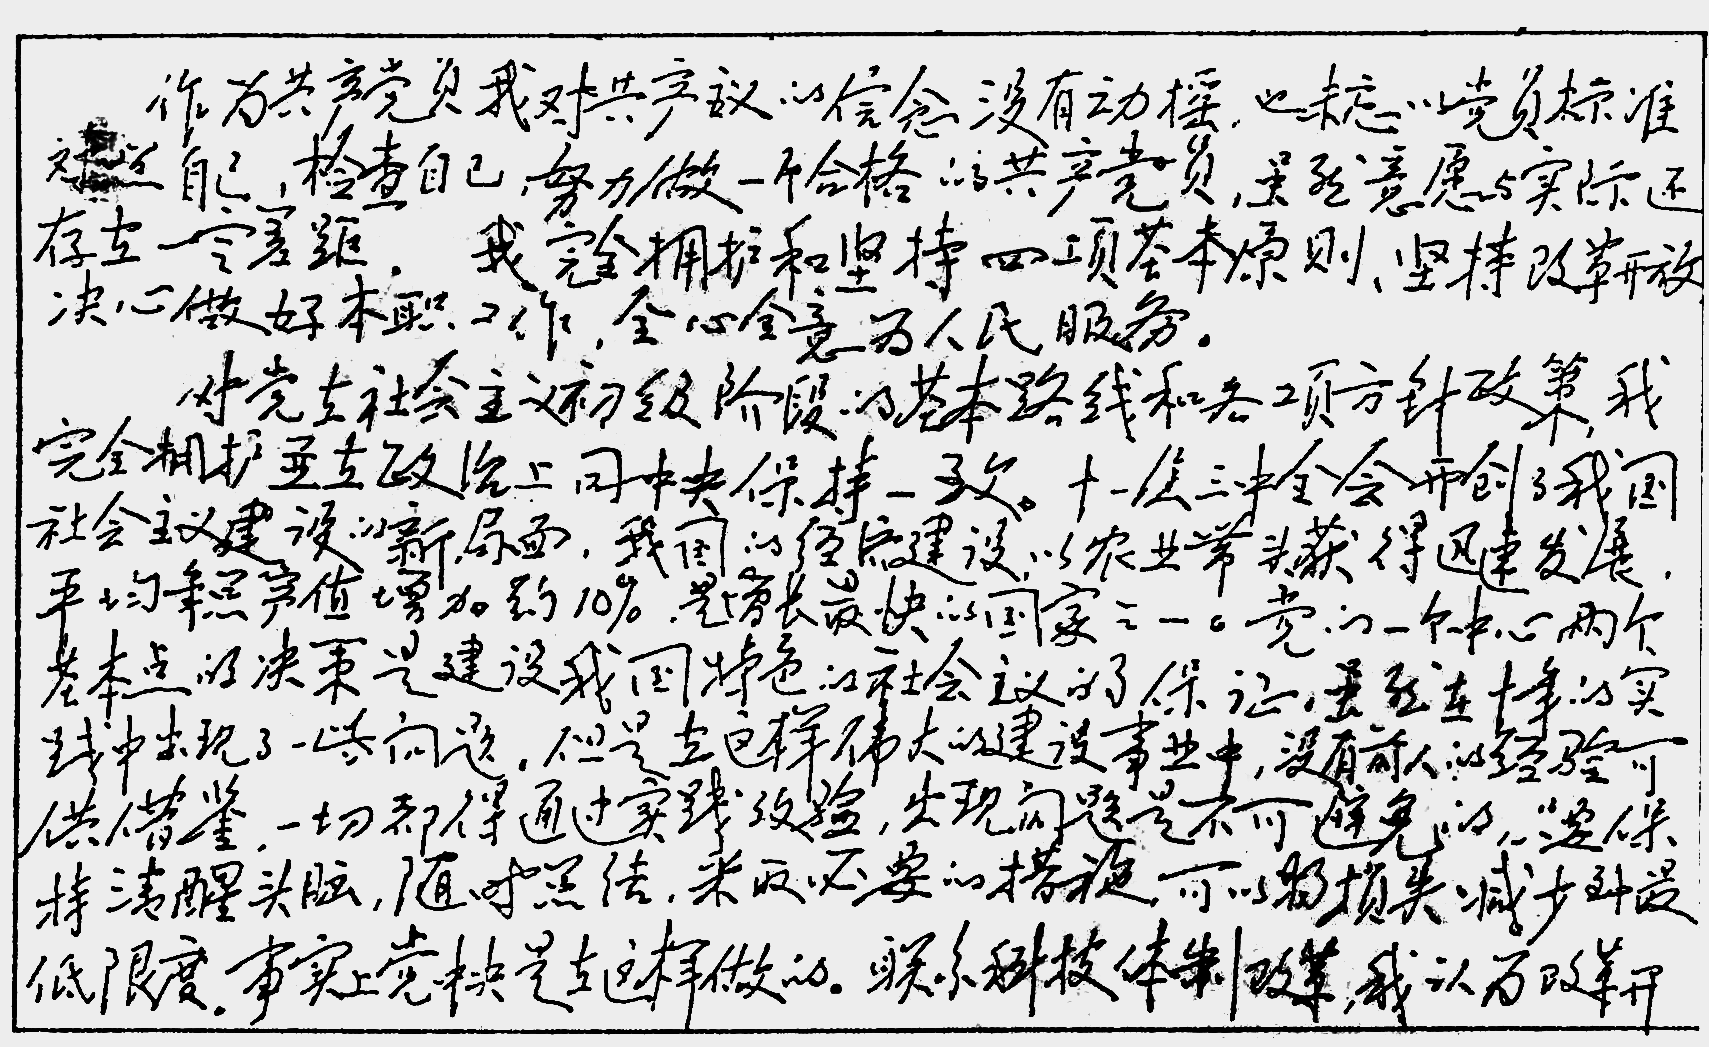 作为共产党员我对共产主义的信念没有动摇，也未忘以党员标准
对照自己，检查自己，努力做一个合格的共产党员，虽然意愿与实际还
存在一定差距。我完全拥护和坚持四项基本原则、坚持改革开放，
决心做好本职工作，全心全意为人民服务。
对党在社会主义初级阶段的基本路线和各项方针政策，我
完全拥护并在政治上同中央保持一致。十一届三中全会开创了我国
社会主义建设的新局面，我国的经济建设，以农业带头获得迅速发展，
平均年总产值增加约10%，是增长最快的国家之一。党的一个中心两个
基本点的决策是建设我国特色的社会主义的保证，虽然在十年的实
践中出现了一些问题，但是在这样伟大的建设事业中，没有前人的经验可
供借鉴，一切都得通过实践效验，出现问题是不可避免的，只要保
持清醒头脑，随时总结，采取必要的措施，可以将损失减少到最
低限度。事实上党中央是在这样做的。联系科技体制改革，我认为改革开